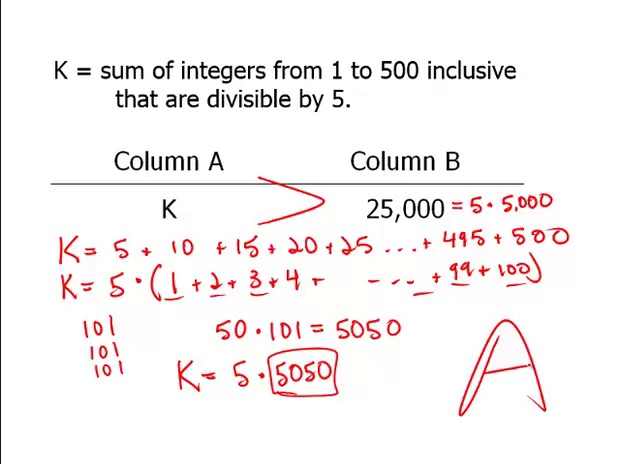 K = sum of integers from 1 to 500 inclusive
that are divisible by 5.
Column A Column B
K > 25,000 = 5 · 5,000
K = 5 + 10 + 15 + 20 + 25 ... + 495 + 500
K = 5 · (1 + 2 + 3 + 4 + - ... + 99 + 100)
101 50 · 101 = 5050
101
101
K = 5 · 5050
A